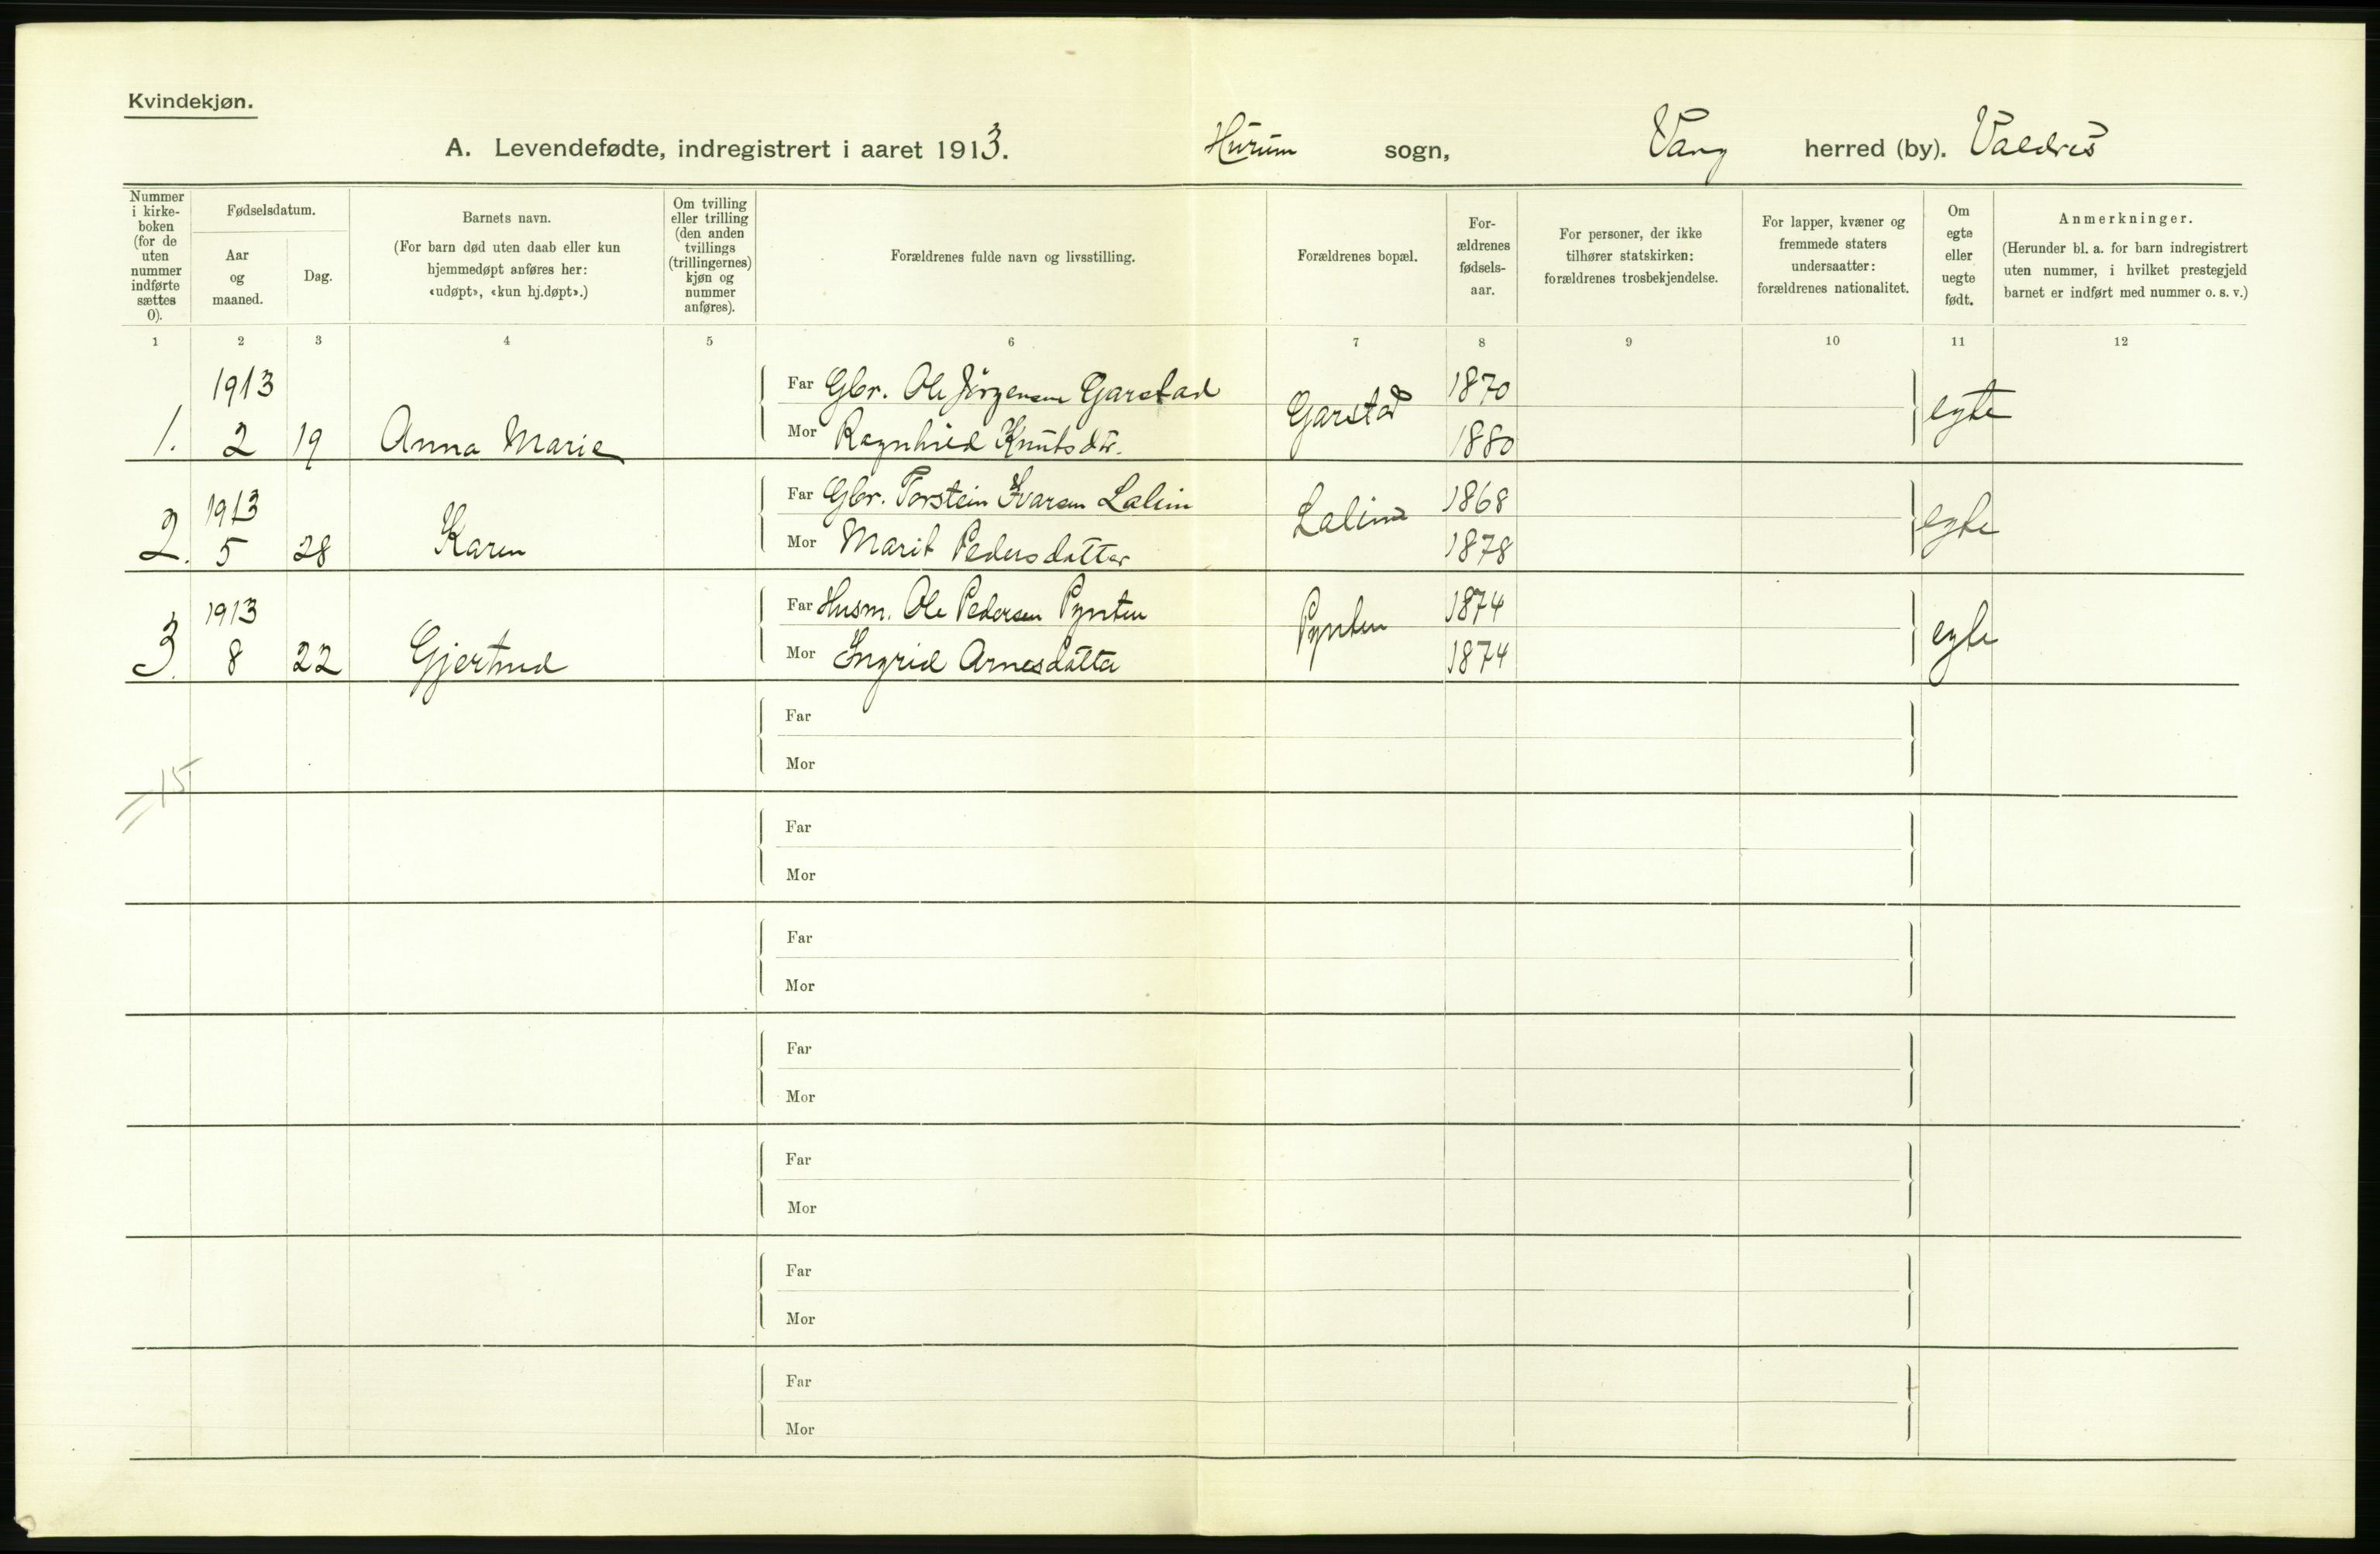 Kvindekjøn.
A. Levendefødte, indregistrert i aaret 1913. Hurum sogn, Vang herred (by). Valdres
Nummer i kirke-boken (for de uten nummer indførte sættes 0).
Fødselsdatum.
Aar og maaned.
Dag.
Barnets navn.
(For barn død uten daab eller kun hjemmedøpt anføres her: «udøpt», «kun hj.døpt».)
Om tvilling eller trilling (den anden tvillings (trillingernes) kjøn og nummer anføres).
Forældrenes fulde navn og livsstilling.
Forældrenes bopæl.
For-ældrenes fødsels-aar.
For personer, der ikke tilhører statskirken: forældrenes trosbekjendelse.
For lapper, kvæner og fremmede staters undersaatter: forældrenes nationalitet.
Om egte eller uegte født.
Anmerkninger.
(Herunder bl. a. for barn indregistrert uten nummer, i hvilket prestegjeld barnet er indført med nummer o. s. v.)
1 2 3 4 5 6 7 8 9 10 11 12
1913 Far Gbr. Ole Jörgensen Garstad 1870
1. 2 19 Anna Marie Mor Ragnhild Knutsdtr. Garstad 1880 egte
1913 Far Gbr. Torstein Ivarsen Lalim 1868
2. 5 28 Karen Mor Marit Pedersdatter Lalim 1878 egte
1913 Far Husm. Ole Pedersen Pynten 1874
3. 8 22 Gjertrud Mor Ingrid Arnesdatter Pynten 1874 egte
Far
Mor
=15
Far
Mor
Far
Mor
Far
Mor
Far
Mor
Far
Mor
Far
Mor